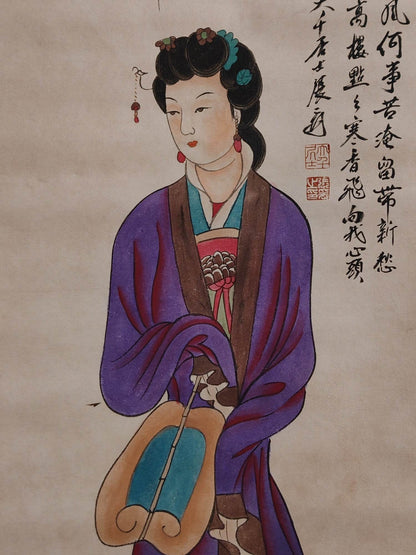 風何事苦淹留帶新愁
高樓點點寒香飛向我心頭
大千居士張爰